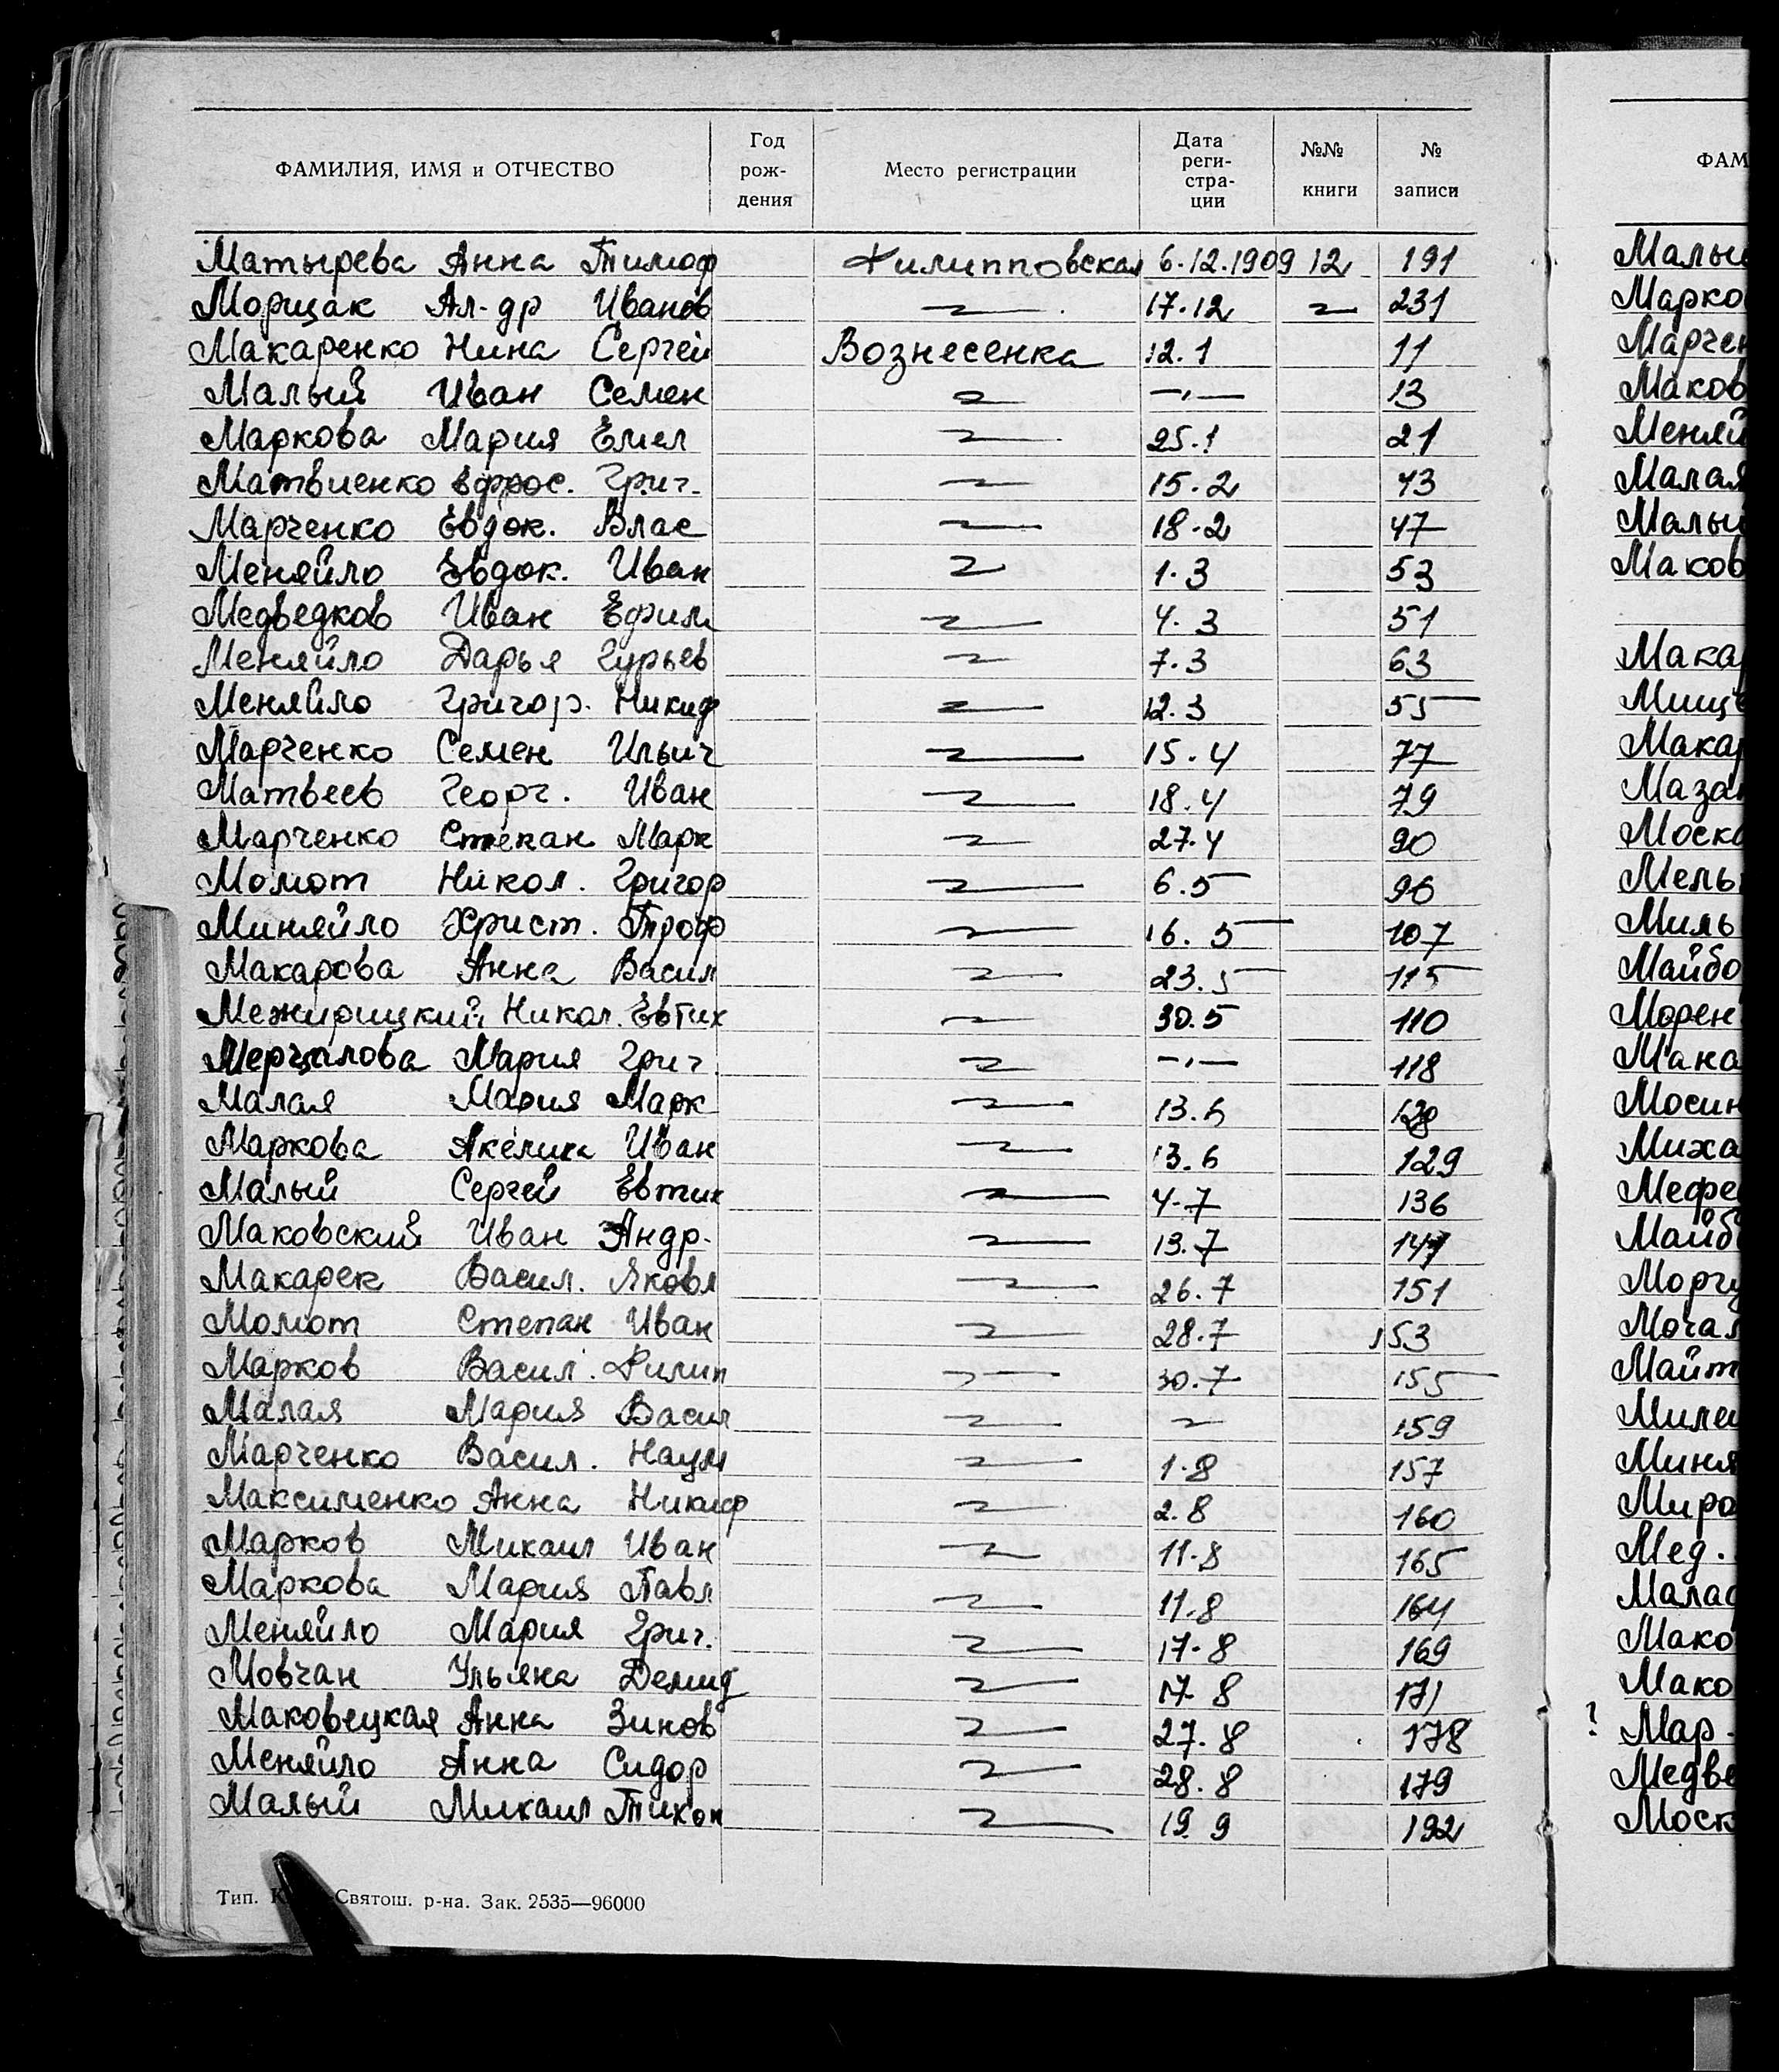 ФАМИЛИЯ, ИМЯ и ОТЧЕСТВО Год рождения Место регистрации Дата регистрации №№ книги № записи
Матырева Анна Тимоф Филипповская 6.12.1909 12 191
Морщак Ал-др Иванов 17.12 231
Макаренко Нина Сергей Вознесенка 12.1 11
Малый Иван Семен —,,— 13
Маркова Мария Емел 25.1 21
Матвиенко Ефрос. Григ. 15.2 43
Марченко Евдок. Влас 18.2 47
Меняйло Евдок. Иван 1.3 53
Медведков Иван Ефим 4.3 51
Меняйло Дарья Гурьев 7.3 63
Меняйло Григор. Никиф 12.3 55
Марченко Семен Ильич 15.4 77
Матвеев Георг. Иван 18.4 79
Марченко Степан Марк 27.4 90
Момот Никол. Григор 6.5 96
Миняйло Христ. Троф 16.5 107
Макарова Анна Васил 23.5 115
Межирицкий Никол. Евтих 30.5 110
Мерцалова Мария Григ. —,,— 118
Малая Мария Марк 13.6 128
Маркова Акелина Иван 13.6 129
Малый Сергей Евтих 4.7 136
Маковский Иван Андр. 13.7 147
Макарек Васил. Яковл 26.7 151
Момот Степан Иван 28.7 153
Марков Васил. Филип 30.7 155
Малая Мария Васил 159
Марченко Васил. Наум 1.8 157
Максименко Анна Никиф 2.8 160
Марков Михаил Иван 11.8 165
Маркова Мария Павл 11.8 164
Меняйло Мария Григ. 17.8 169
Мовчан Ульяна Демид 17.8 171
Маковецкая Анна Зинов 27.8 178
Меняйло Анна Сидор 28.8 179
Малый Михаил Тихон 19.9 192
Тип. Святош. р-на. Зак. 2535—96000